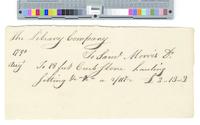 The Library Company
To Saml Morris Dr.
1790
Augt To 18 feet Curb Stone hauling
setting &c &c a 3/6 - £ 3-13-3